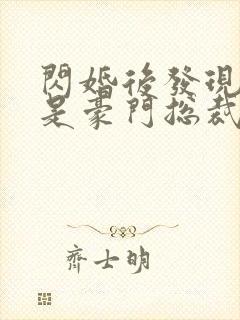 閃婚後發現
是豪門總裁
齊士明